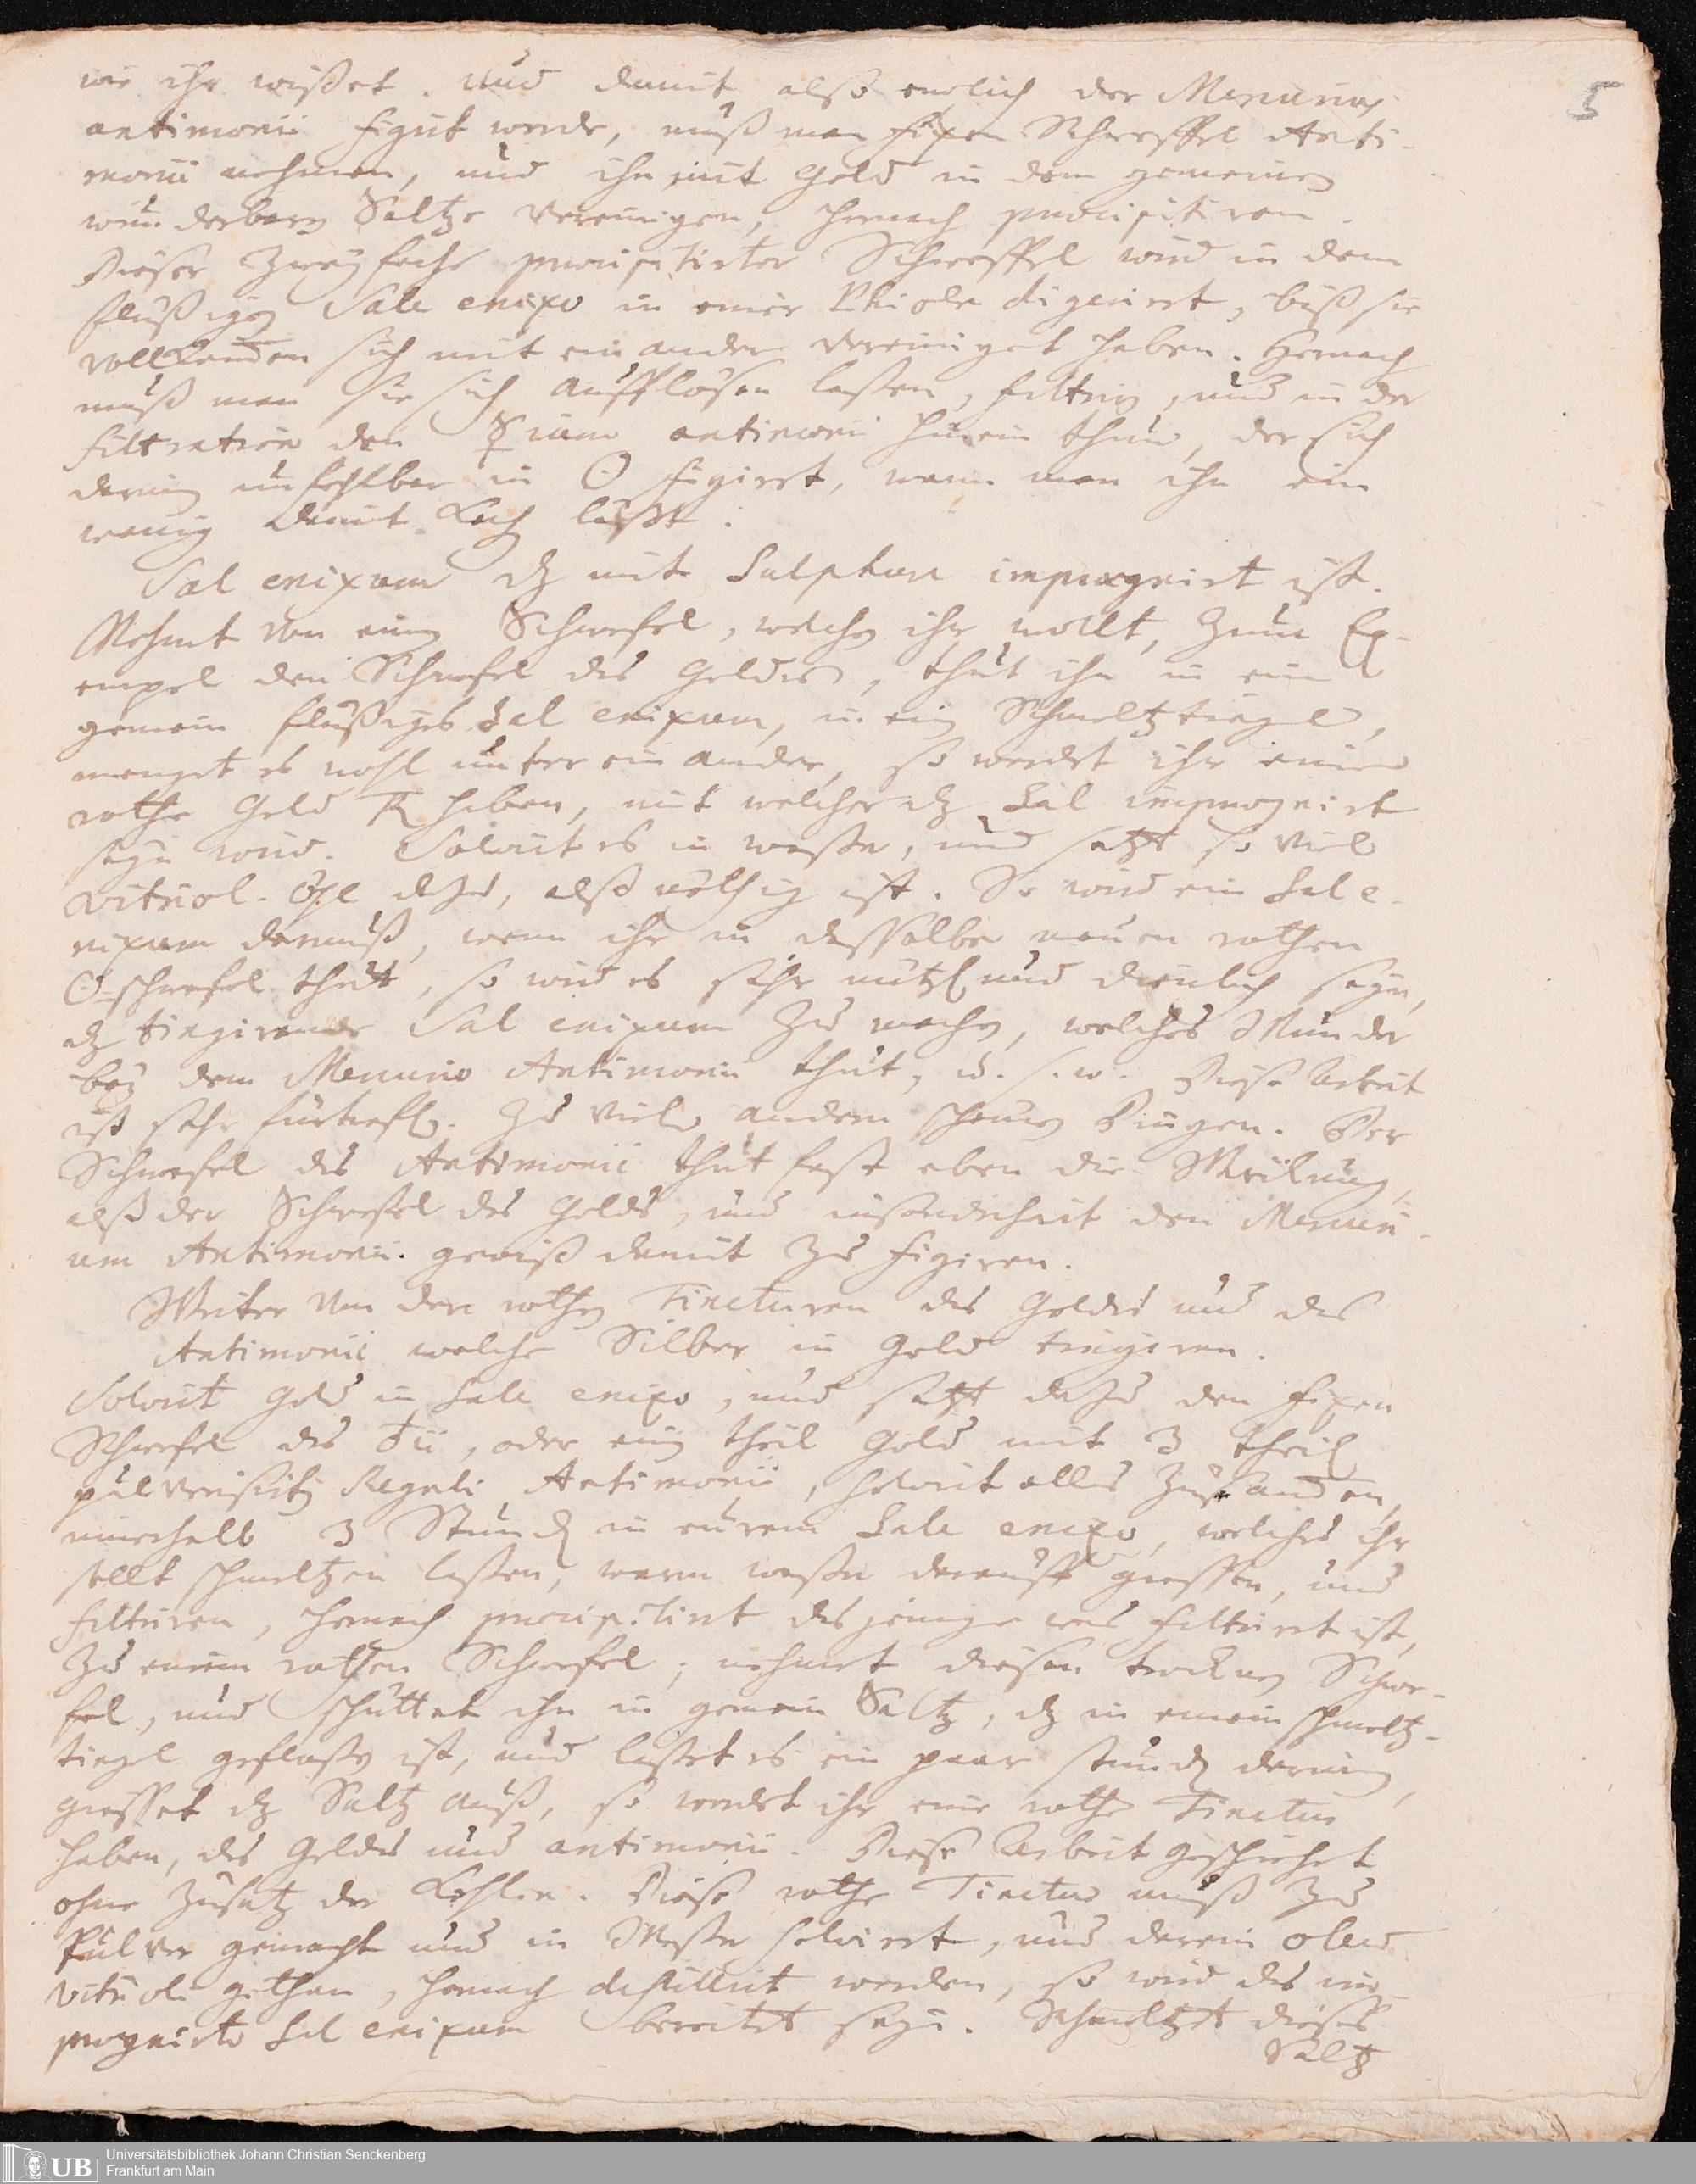 5
wie ihr wißet. Und damit also endlich der Mercurius
antimonii figirt werde, muß man fixen Schweffel Anti-
monii nehmen, und ihn mit Gold in dem gemeinen
wunderbaren Saltze vereinigen, hernach præcipitiren.
Dieser zweyfache præcipitirter Schweffel wird in dem
flüßigen Sale enixo in einer Phiole digerirt, biß sie
vollkommen sich mit einander vereiniget haben. Hernach
muß man sie sich aufflösen laßen, filtriren, und in der
filtration den ☿ium antimonii hinein thun, der sich
darinn unfehlbar in ☉ figirt, wenn man ihn ein
wenig damit kochen läßt.
Sal enixum dz mit Sulphure imprægnirt ist.
Nehmt von einem Schwefel, welchen ihr wollt, zum Ex-
empel den Schwefel des Goldes, thut ihn in ein
gemein flüßiges Sal enixum, in ein Schmeltztiegel,
menget es wohl unter einander, so werdet ihr eine
rothe Gold haben, mit welcher dz Sal imprægnirt
seyn wird. Solvirt es in waßer, und setzt so viel
Vitriol-Öhl dazu, alß nöthig ist. So wird ein Sal e-
nixum darauß, wenn ihr in desselbe neuen rothen
☉-schwefel thut, so wird es sehr nützl und dienlich seyn,
dz tingirende Sal enixum zu machen, welches Wunder
bey dem Mercurio Antimonii thut, u. s. w. Diese Arbeit
ist sehr fürtrefl. zu vielen andern schönen Dingen. Der
Schwefel des Antimonii thut fast eben die Würkung,
alß der Schwefel des Golds, und insonderheit den Mercuri-
um Antimonii gewiß damit zu figiren.
Weiter von den rothen Tincturen des Goldes und des
Antimonii welche Silber in Gold tingiren.
Solvirt Gold in Sale enixo, und setzt dazu den fixen
Schwefel des ♁ii, oder ein theil Gold mit 3 theil
pulverisirten Reguli Antimonii, solvirt alles zusammen,
innerhalb 3 Stunden in eurem Sale enixo, welches ihr
sollt schmeltzen laßen, warm waßer darauff giessen, und
filtriren, hernach præcipitirt dasjenige was filtrirt ist,
zu einem rothen Schwefel; nehmet diesen trocknen Schwe-
fel, und schüttet ihn in gemein Saltz, dz in einem schmeltz-
tiegel geflossen ist, und laßet es ein paar stunden darinn,
giesset dz Saltz auß, so werdet ihr eine rothe Tinctur
haben, des Goldes und antimonii. Diese Arbeit geschiehet
ohne Zusatz der Kohlen. Diese rothe Tinctur muß zu
Pulver gemacht und in Waßer solvirt, und darein oleum
vitrioli gethan, hernach destillirt werden, so wird das im-
prægnirte Sal enixum bereitet seyn. Schmeltzet dieses
Saltz
UB
Universitätsbibliothek Johann Christian Senckenberg
Frankfurt am Main